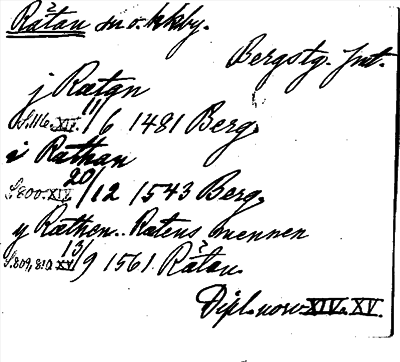 Rätan sn o. kkby.
Bergstg. Jmt.
j Rætgn
S. 116. XIV. 11/6 1481 Berg.
i Rathan
S. 800. XIV. 20/12 1543 Berg.
y Räthen.. Ratens mennen
S. 809, 810. XV. 13/9 1561. Rätan.
Dipl. norv. XIV. XV.